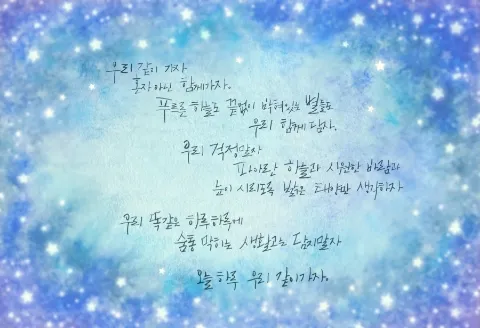 우리 같이 가자
혼자 아닌 함께가자.
푸르른 하늘도 끝없이 박혀있는 별들도
우리 함께 담자.
우리 걱정말자
파아란 하늘과 시원한 바람과
눈이 시리도록 밝은 태양만 생각하자
우리 똑같은 하루하루에
숨통 막히는 생활고는 담지말자
오늘 하루 우리 같이가자.